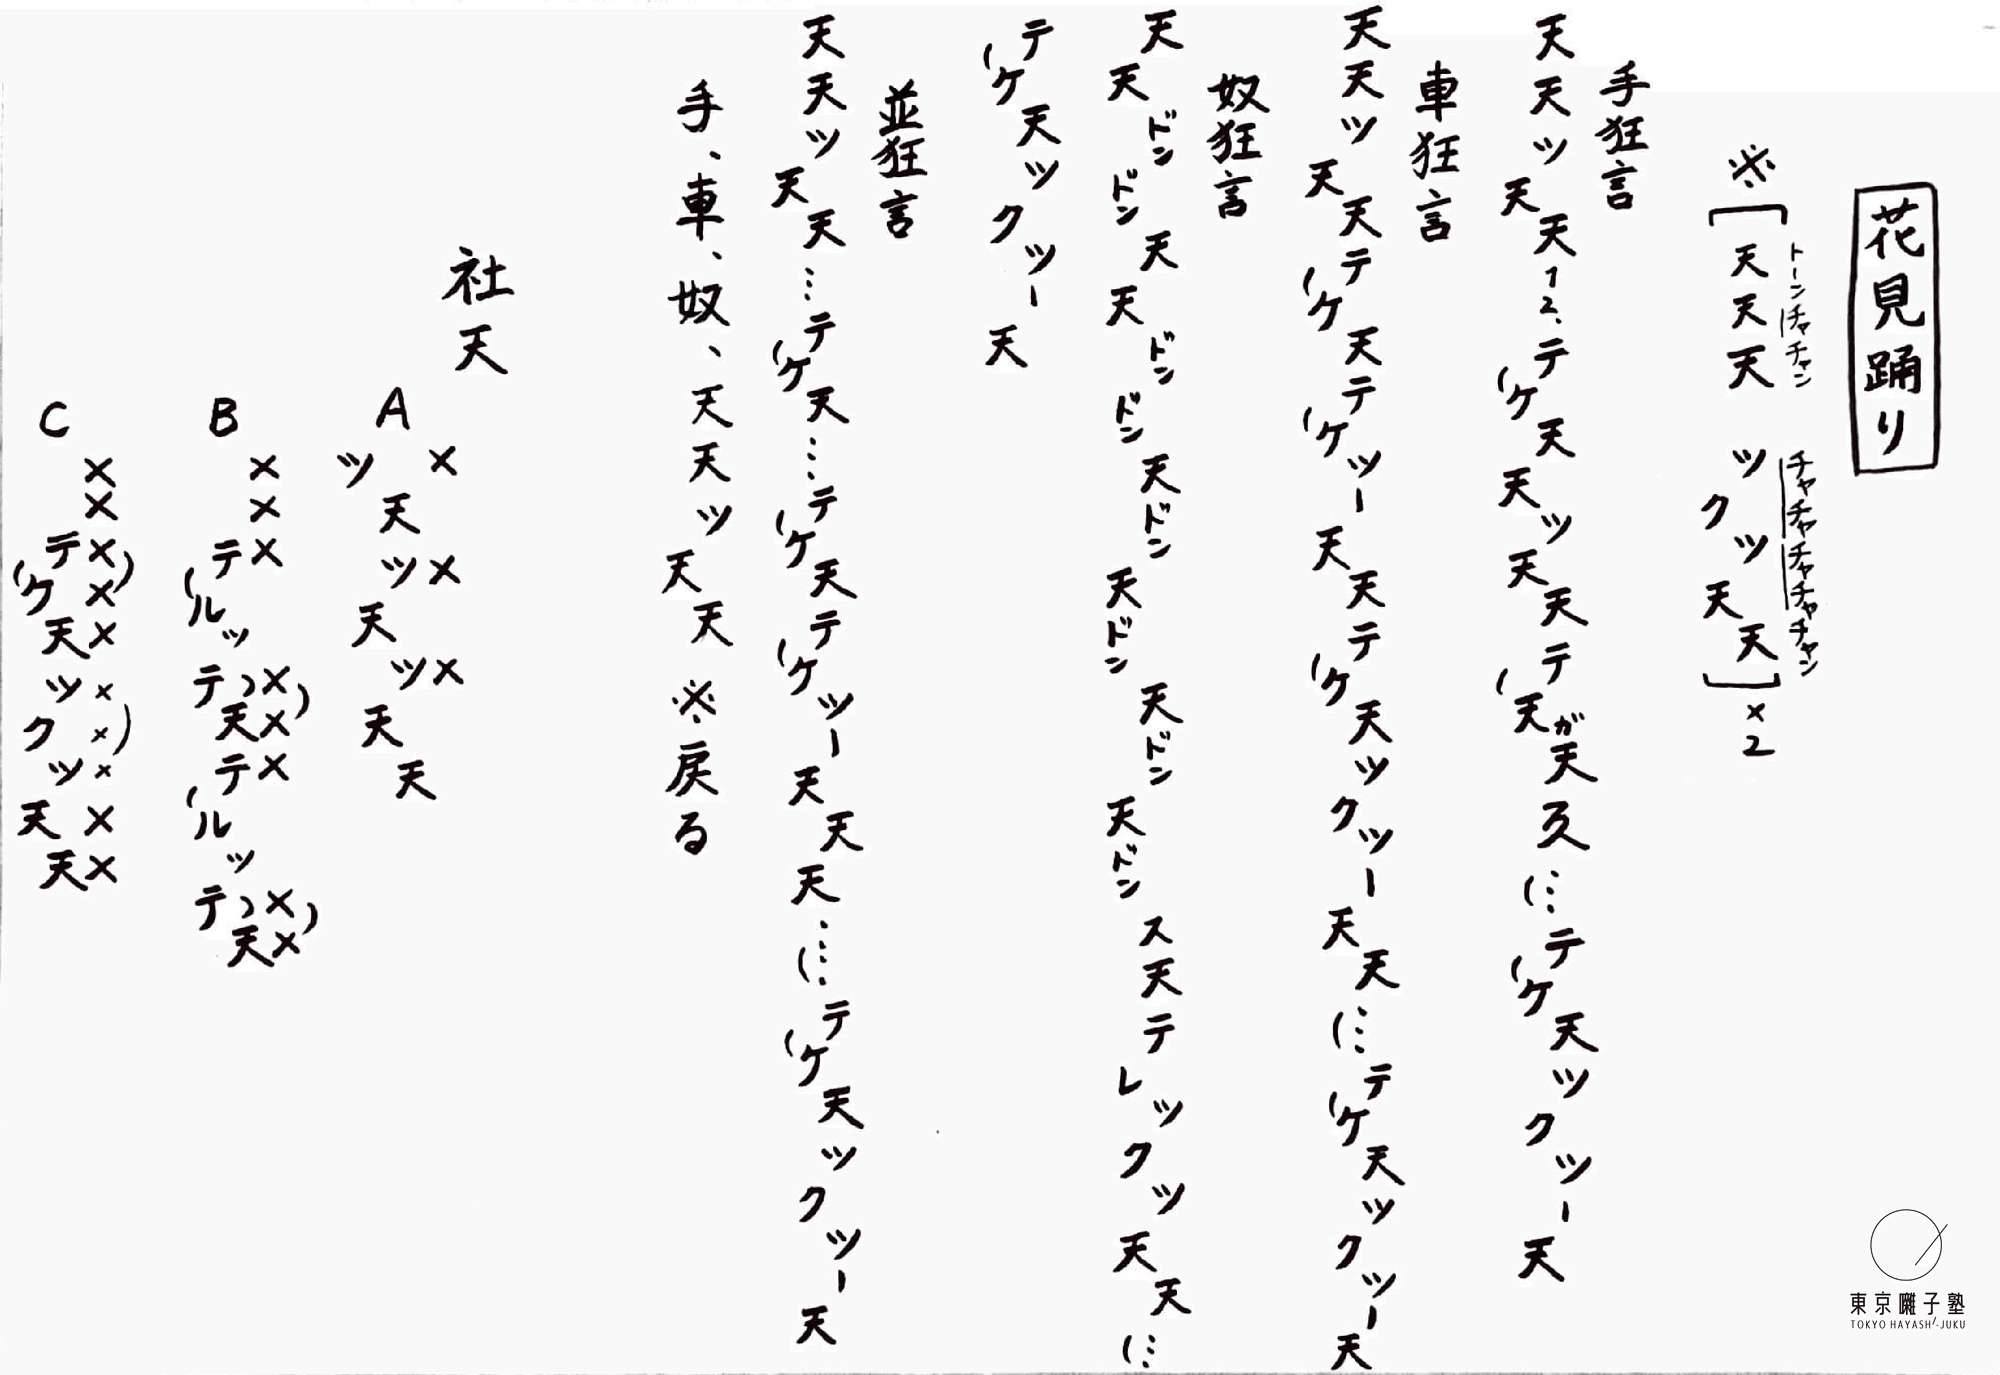 花見踊り
トーンチャチャン チャチャチャチャチャン
※ 天天天 ツクツ天天 ×2
手狂言
天天ツ天天12.テケ天天ツ天天テ天ガ天久…テケ天ツクツー天
車狂言
天天ツ天天テケ天テケツー天天テケ天ツクツー天天…テケ天ツクツー天
奴狂言
天天ドンドン天天ドンドン天ドン天ドン天ドン天ドンス天テレツクツ天天…
テケ天ツクツー天
並狂言
天天ツ天天…テケ天…テケ天テケツー天天天…テケ天ツクツー天
手、車、奴、天天ツ天天 ※戻る
社天
× × ×
A ツ天ツ天ツ天天
× × × × × × × ×
B テルッテッ天テルッテッ天
× × × × × × × × × ×
C テケ天ツクツ天天
東京囃子塾
TOKYO HAYASHI-JUKU